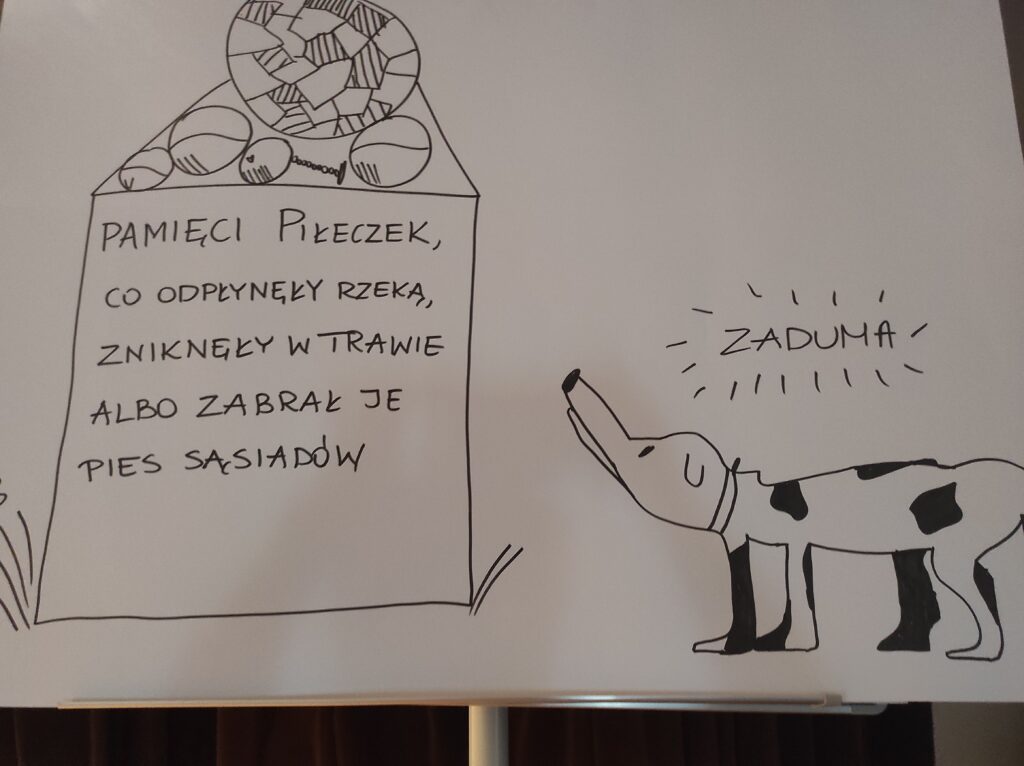 PAMIĘCI PIŁECZEK,
CO ODPŁYNĘŁY RZEKĄ,
ZNIKNĘŁY W TRAWIE
ALBO ZABRAŁ JE
PIES SĄSIADÓW
ZADUMA